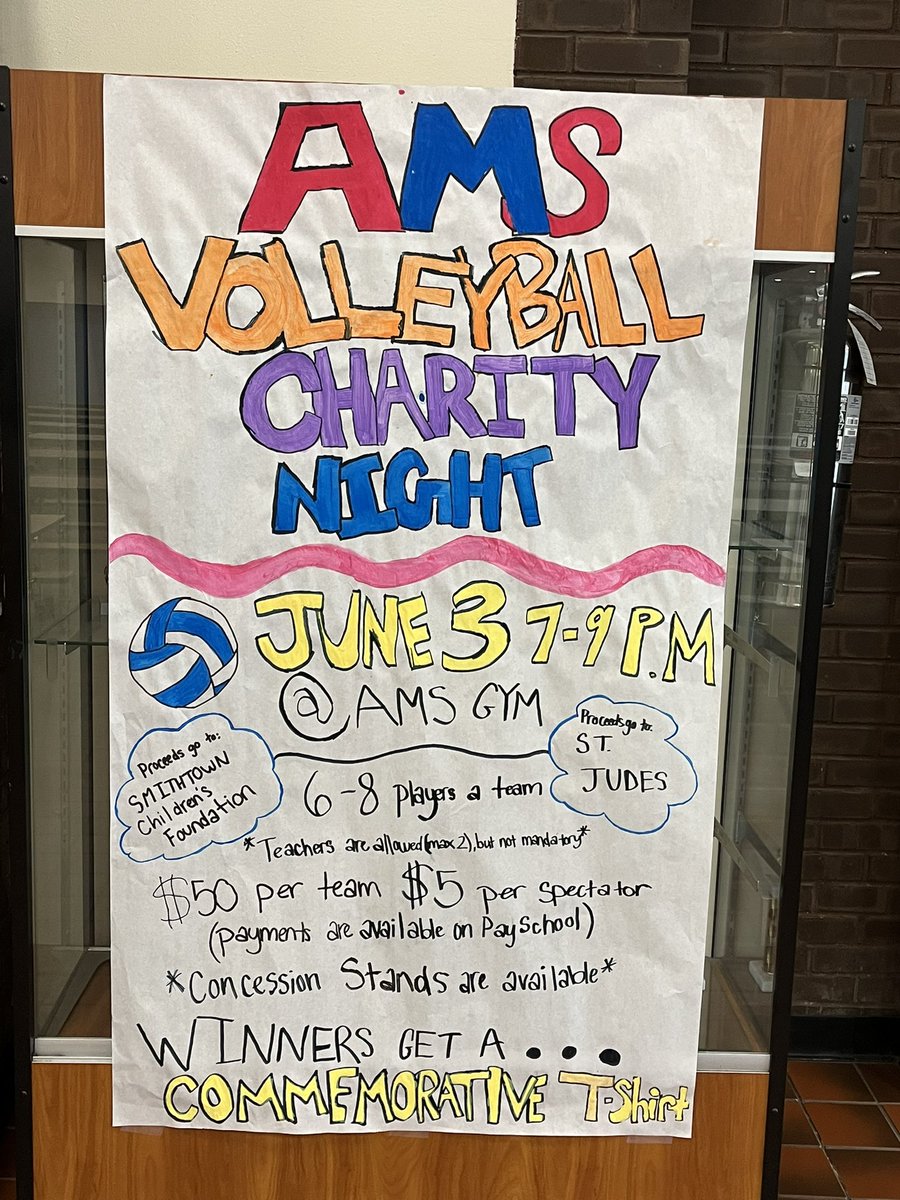 AMS
VOLLEYBALL
CHARITY
NIGHT
JUNE 3 7-9 P.M
@ AMS GYM
Proceeds go to:
SMITHTOWN
Children's
Foundation
Proceeds go to:
ST.
JUDES
6-8 players a team
*Teachers are allowed (max 2), but not mandatory*
$50 per team $5 per spectator
(payments are available on PaySchool)
*Concession Stands are available*
WINNERS GET A ...
COMMEMORATIVE T-Shirt